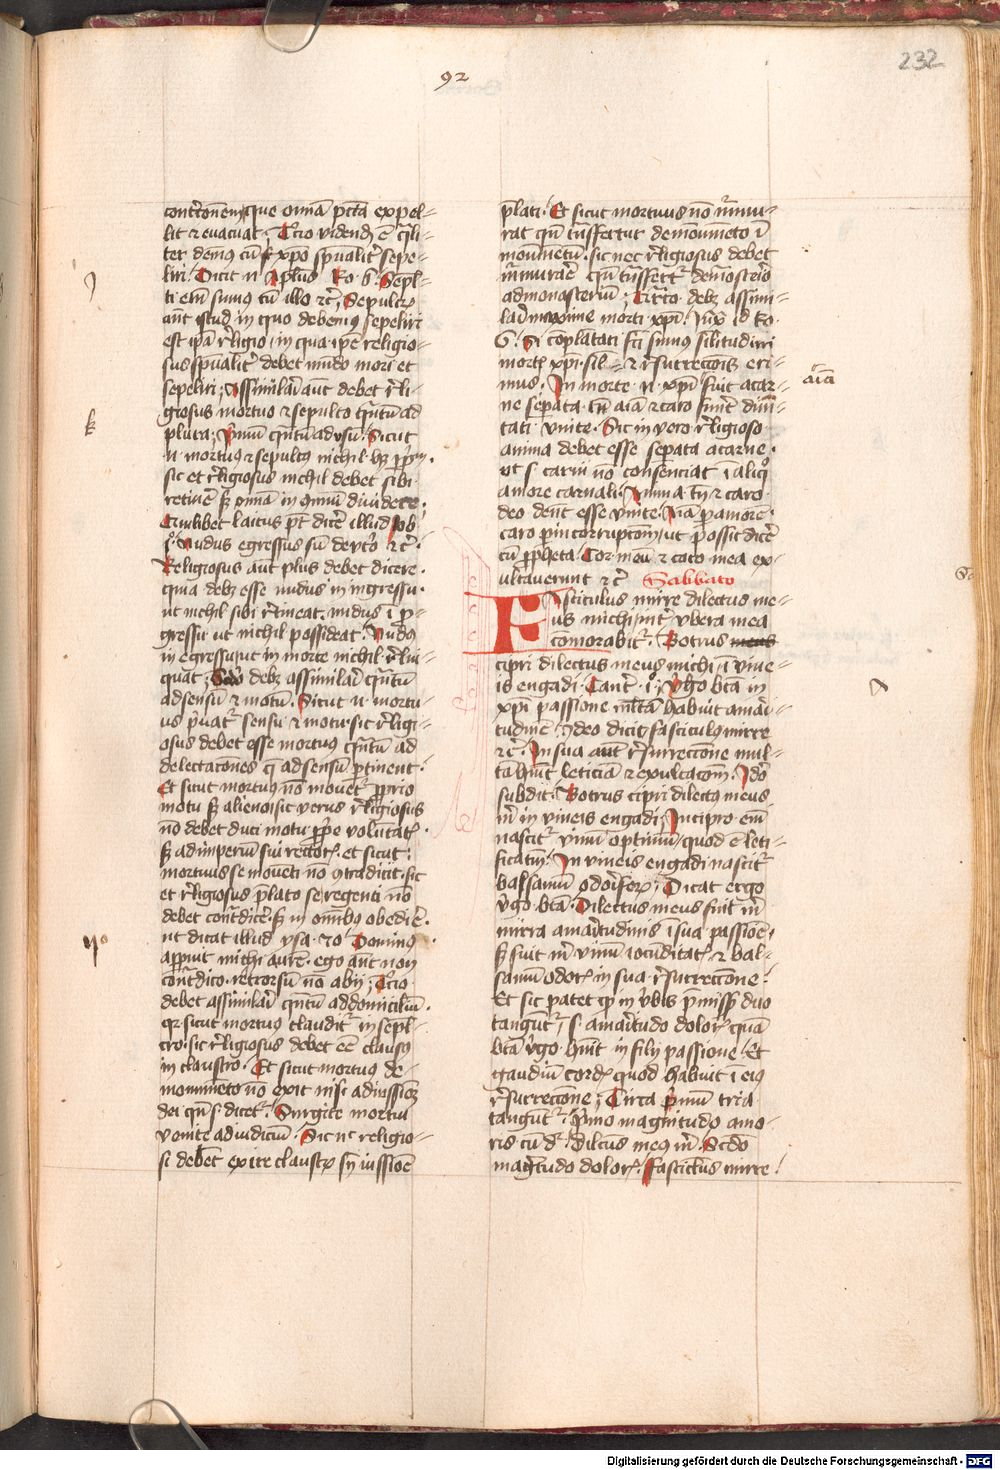 92
232
contricionem que omnia pctā expel-
lit & evacuat. Tercio videndū ē qli-
ter dem⁹ cū xpo spūalitr sepe-
liri. Dicit n Aplūs Ro 6. Sepul-
ti eni sumus cū illo &c. Sepulcrū
aūt istud in quo debemus sepeliri
est ipa rligio, in qua ipe religio-
sus spūalitr debet mūdo mori et
sepeliri; Assimilari aūt debet rli-
giosus mortuo & sepulto qntū ad
plura; Primū qntū ad usū. Sicut
n mortuus & sepultus nichil hz pprium.
sic et rligiosus nichil debet sibi
retinē sz omnia in omniū dividere.
Quilibet laicus pt dicē illud Job
i. Nudus egressus sū de utero &c.
Religiosus aūt plus debet dicere.
quia debz esse nudus in ingressu.
ut nichil sibi rtineat. nudus ī p-
gressu ut nichil possideat. Nudus
in egressu, ut in morte nichil rlin-
quat; Scdo debz assimilari qntū
ad sensū & motū. Sicut n mortu-
us privatr sensu & motu. sic rligi-
osus debet esse mortuus qntū ad
delectacones q ad sensū ptinent.
Et sicut mortuus nō movetr pprio
motu sz alieno. sic verus rligiosus
nō debet duci motu pprie volūtatis.
sz ad imperiū sui rectoris. et sicut
mortuus se moventi nō 9tradicit. sic
et rligiosus plato se regenti nō
debet contdicē. sz in omnibus obedire.
ut dicat illud ysa. 50 Dominus
apperuit michi aurē. ego aūt non
contdico. retrorsū nō abij; Tercio
debet assimilari qntū ad domiciliū.
qr sicut mortuus claudit in sepul-
cro. sic rligiosus debet eē clausus
in claustro. Et sicut mortuus de
monumeto nō exit nisi ad iussionē
dei qn s dicetr. Surgite mortui
venite ad iudiciū. Sic nc religio-
si debēt exire claustrū sn iussione
plati. Et sicut mortuus nō murmu-
rat qn tnsfertur de monumeto ī
monumentū. sic nec rligiosus debet
murmurare qn tnsfertr de monasterio
ad monasteriū; Quarto debz assimi-
lari maxime morti xpi. Iux id Ro
6. Si complantati fti sumus silitudini
mortis xpi. sil & rsurreccois eri-
mus. In morte n xpi fuit a car-
ne sepata aīa
tn aīa & caro fuerūt divini-
tati unite. Sic in vero rligioso
anima debet esse sepata a carne.
ut s carni nō consenciat ī aliquo
amore carnali. Anima tn & caro
deo debent esse unite. Aīa p amore
caro p incorrupcom, ut possit dicē
cū ppheta. Cor meū & caro mea ex-
ultaverunt &c Sabbato
Fasciculus mirre dilectus me-
us michi, int ubera mea
comorabitr. Botrus
cipri dilectus meus michi, ī vine-
is engadi. Cant. i. Virgo bta in
xpi passione mltā habuit amari-
tudinē. ideo dicit fasciculus mirre
&c. In sua aut rsurreccone mul-
tā huit leticiā & exultacom. Ideo
subdit. Botrus cipri dilectus meus
m in vineis engadi. In cipro eni
nascitr vinū optimū, quod ē leti-
ficatiuū. In vineis engadi nascitr
balsamū odoriferū; Dicat ergo
virgo bta. Dilectus meus fuit m
mirra amaritudinis ī sua passiōe.
sz fuit m vinū iocunditatis & bal-
samū odoris in sua rsurreccone.
Et sic patet qp in verbis pmissis duo
tangūtr, s. amaritudo doloris quā
bta virgo huit in filij passione. Et
gaudiū cordis quod habuit ī eius
rsurreccone; Circa primū tria
tanguntr. Primo magnitudo amo-
ris cū dr. Dilcūs meus m. Scdo
magnitudo doloris. Fasciculus mirre.
k
Digitalisierung gefördert durch die Deutsche Forschungsgemeinschaft - DFG